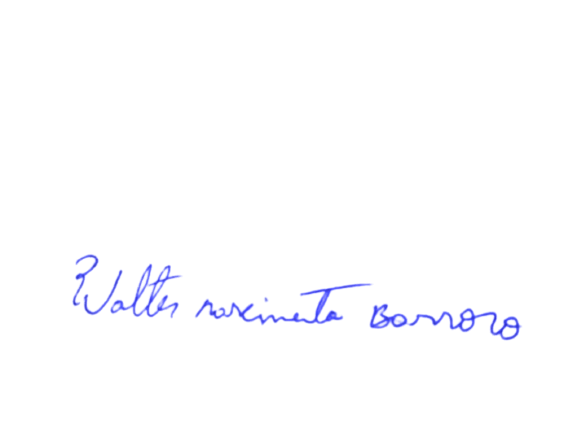 Walter nascimento Barroso